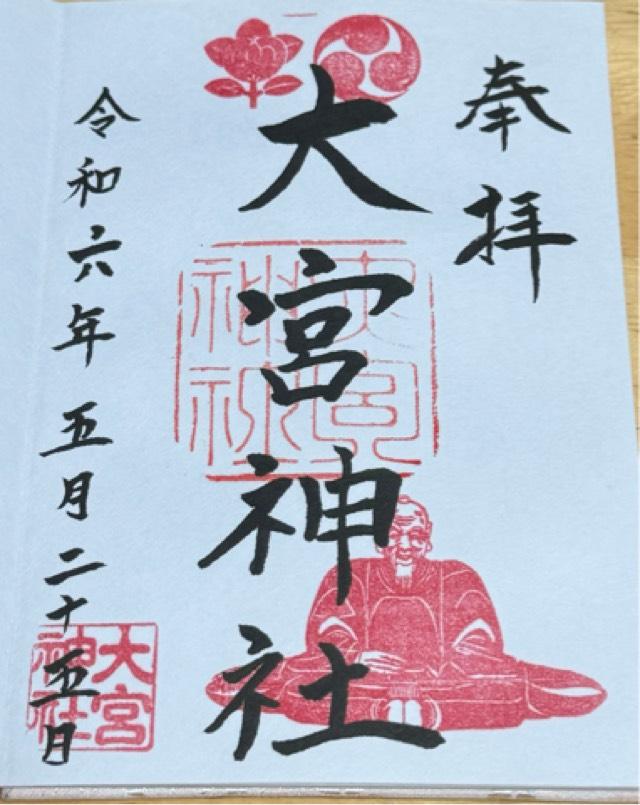 奉拝
大宮神社
令和六年五月二十五日
大宮
神社
大宮
神社